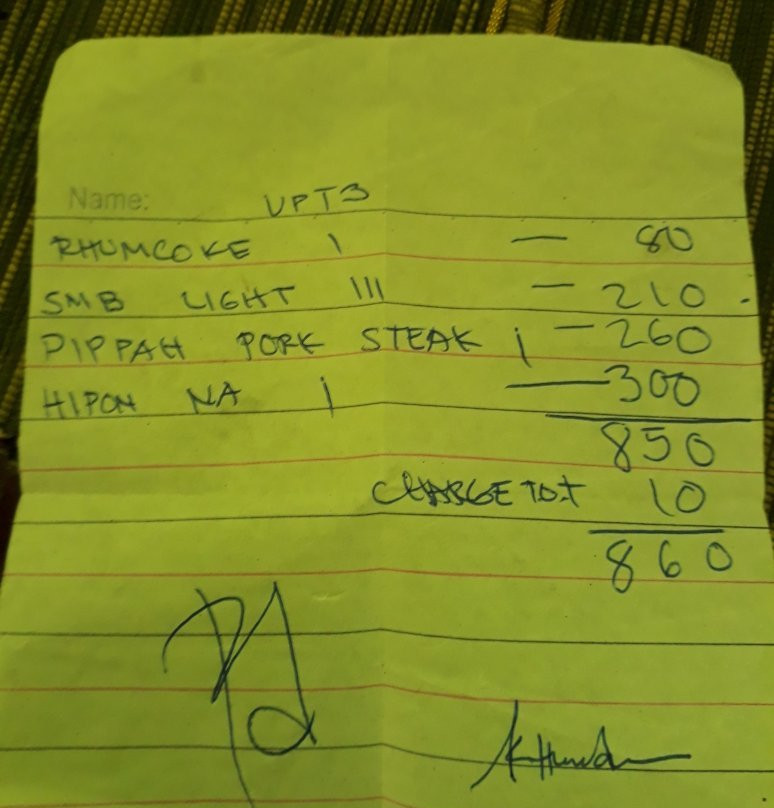 Name: UPT3
RHUMCOKE I — 80
SMB LIGHT III — 210
PIPPAH PORK STEAK I — 260
HIPON NA I — 300
850
CHARGE TO.T 10
860
Pd